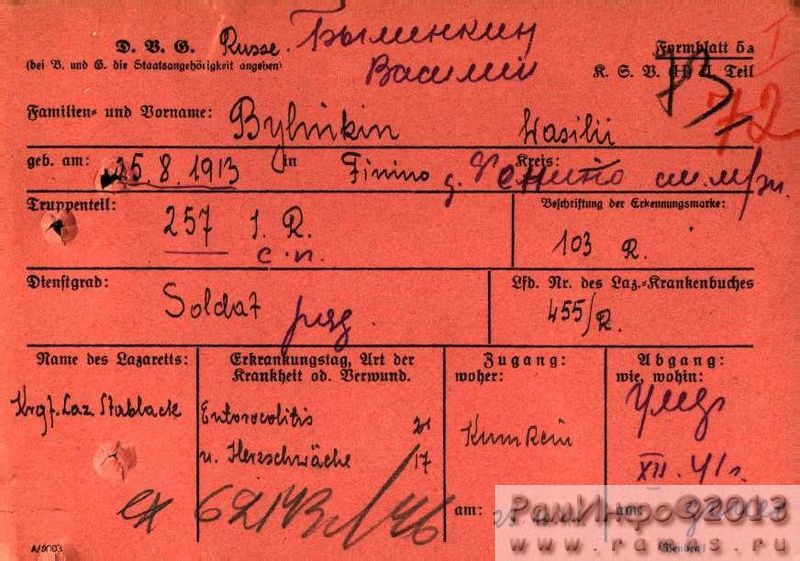 D. V. G. Russe. Былинкин Formblatt 5a I
(bei V. und G. die Staatsangehörigkeit angeben) Василий K. S. V. (H) II. Teil
73, 72
Familien- und Vorname: Bylinkin Wasilii
geb. am: 25. 8. 1913 in Finino Kreis:
д.
Truppenteil: 257 I. R. Beschriftung der Erkennungsmarke:
с. п. 103 R.
Dienstgrad: Soldat ряд. Lfd. Nr. des Laz.-Krankenbuches
455/R.
Name des Lazaretts: Erkrankungstag, Art der Krankheit od. Verwund. Zugang: woher: Abgang: wie, wohin:
Krgf. Laz. Stablack Enterocolitis 21 Kumkein
u. Herzschwäche 17 XII. 41 г.
62143 /46
am: am:
A/9003 Wenden!
РамИнфо©2013
www.ramns.ru